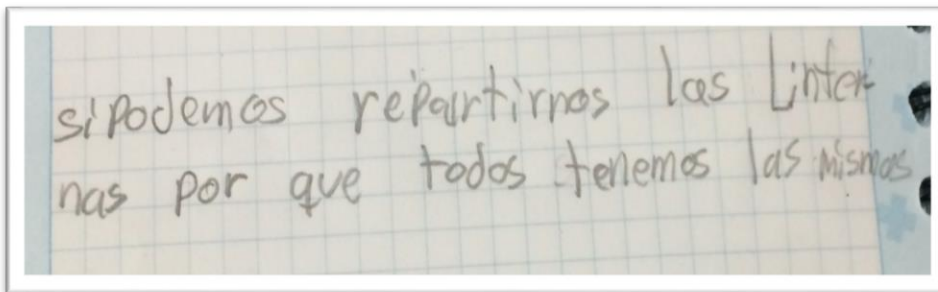 sipodemos repartirnos las Linter
nas por que todos tenemos las mismas